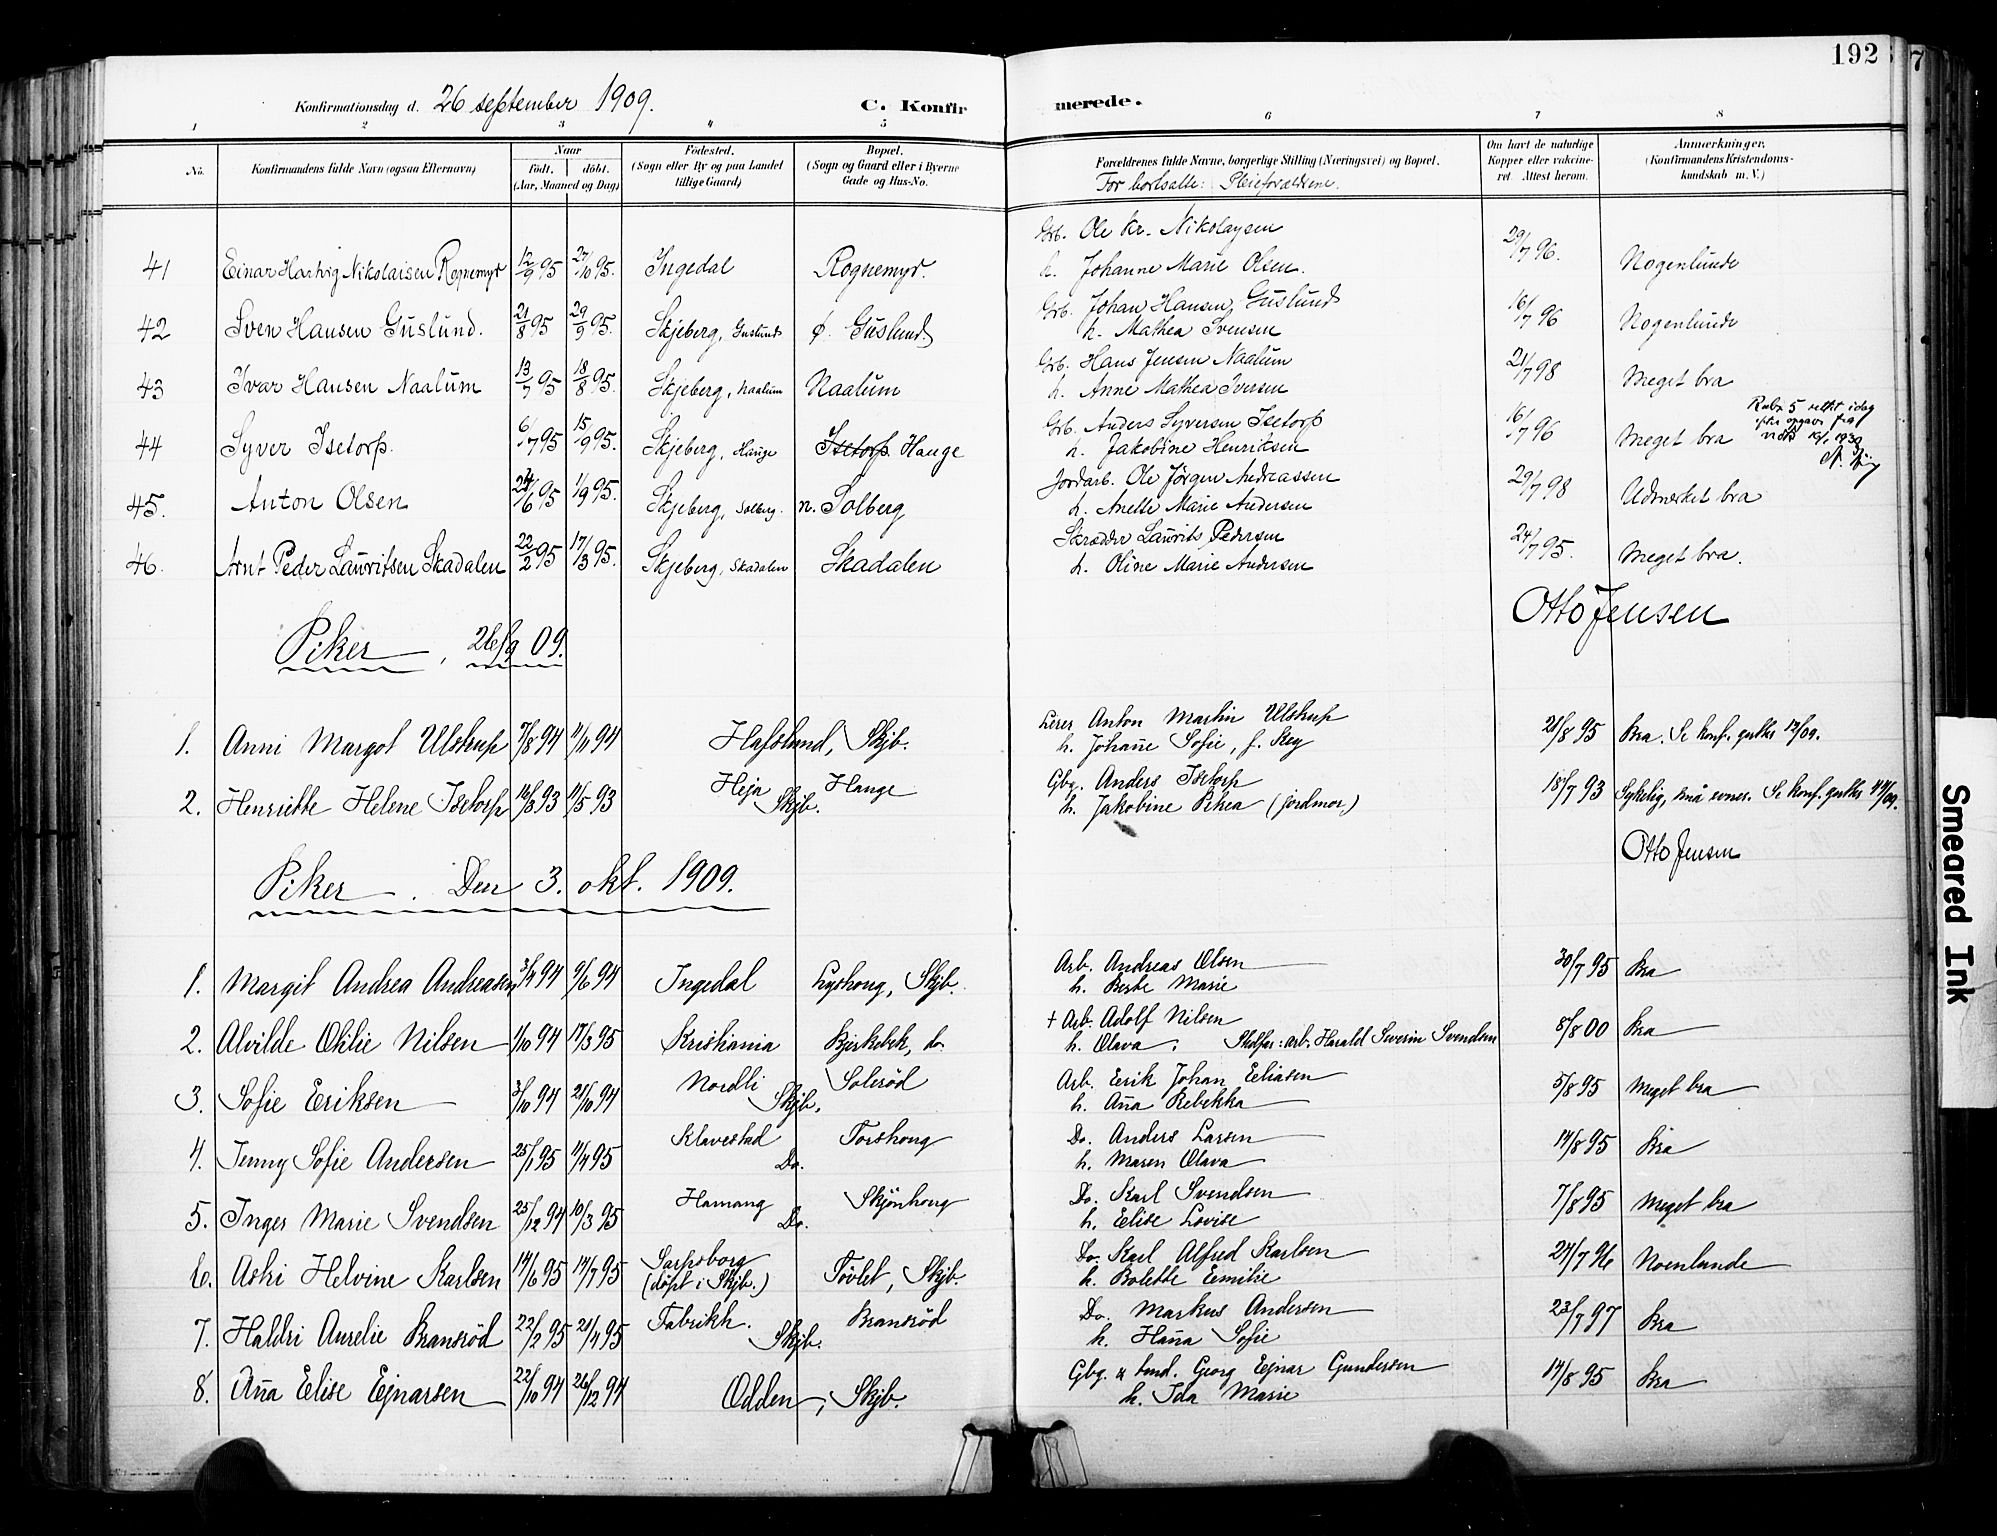 192
7
Konfirmationsdag d. 26 september 1909.
C. Konfirmerede.
1 2 3 4 5 6 7 8
No.
Konfirmandens fulde Navn (ogsaa Efternavn)
Naar
født. døbt.
(Aar, Maaned og Dag)
Fødested.
(Sogn eller By og paa Landet
tillige Gaard)
Bopæl.
(Sogn og Gaard eller i Byerne
Gade og Hus-No.
Forældrenes fulde Navne, borgerlige Stilling (Næringsvei) og Bopæl.
For bortsatte: Pleieforældrene.
Om havt de naturlige
Kopper eller vaccine-
ret. Attest herom.
Anmerkninger.
(Konfirmandens Kristendoms-
kundskab m. V.)
41 Einar Hartvig Nikolaisen Rognemyr 12/9 95 27/10 95. Ingedal Rognemyr. Grb. Ole Kr. Nikolaysen
h. Johanne Marie Olsen. 29/7 96. Nogenlunde
42 Sven Hansen Guslund. 21/8 95 29/9 95. Skjeberg, Guslund ø. Guslund Grb. Johan Hansen Guslund
h. Mathea Svensen 16/7 96 Nogenlunde
43 Ivar Hansen Naalum 13/7 95 18/8 95. Skjeberg, Naalum Naalum Grb. Hans Jensen Naalum
h. Anne Mathea Iversen 21/7 98 Meget bra
44 Syver Isetorp. 6/7 95 15/9 95. Skjeberg, Hauge Isetorp Hauge Grb. Anders Syversen Isetorp
h. Jakobine Henriksen 16/7 96 Meget bra
Rubr 5 rettet idag
45. Anton Olsen 24/6 95 1/9 95. Skjeberg, Solberg. n. Solberg Jordarb. Ole Jørgen Andreassen
h. Anette Marie Andersen 29/7 98 Udmerket bra
46. Arnt Peder Lauritsen Skadalen 22/2 95 17/3 95. Skjeberg, Skadalen Skadalen Skrædder Laurits Pedersen
h. Oline Marie Andersen 24/7 95. Meget bra.
Otto Jensen
Piker, 26/9 09.
1. Anni Margot Ulstrup 7/8 94 11/11 94 Hafslund, Skjb. Lærer Anton Martin Ulstrup
h. Johanne Sofie, f. 21/8 95 Bra. Se konf. 12/09.
2. Henriette Helene Isetorp 16/3 93 11/5 93 Heja Hauge
Skjb. Gbg. Anders Isetorp
h. Jakobine Rhea (jordmor) 18/7 93 Sykelig, små evner. Se konf. 44/09.
Otto Jensen
Piker. Den 3. okt. 1909.
1. Margit Andrea Andreasen 3/4 94 9/6 94 Ingedal Lyshoug, Skjb. Arb. Andreas Olsen
h. Berte Marie 30/7 95 Bra
2. Alvilde Otilie Nilsen 1/10 94 17/3 95 Kristiania Bjerkebek, do. + Arb. Adolf Nilsen
h. Olava. Stedfar: arb. Harald Severin Svendsen 8/8 00 Bra
3. Sofie Eriksen 3/10 94 21/10 94 Nordli Solerød
Skjb. Arb. Erik Johan Eeliasen
h. Anna Rebekka 5/8 95 Meget bra
4. Jenny Sofie Andersen 25/1 95 11/4 95 Klavestad Torshoug
Do. Do. Anders Larsen
h. Maren Olava 14/8 95 Bra
5. Inger Marie Svendsen 25/12 94 10/3 95 Hamang Skjønhoug
Do. Do. Karl Svendsen
h. Eelise Lovise 7/8 95 Meget bra
6. Aslri Helvine Karlsen 14/6 95 14/7 95 Sarpsborg
(døpt i Skjb.) Tøvlet, Skjb. Do. Karl Alfred Karlsen
h. Bolette Eemilie 24/7 96 Noenlunde
7. Haldri Aurelie Bransrød 22/2 95 21/4 95 Fabrikk. Bransrød
Skjb. Do. Markus Andersen
h. Hanna Sofie 23/7 97 Bra
8. Anna Eelise Ejnarsen 22/10 94 26/12 94 Odden, Skjb. Gbg. Georg Ejnar Gundersen
h. Ida Marie 14/8 95 Bra
Smeared Ink